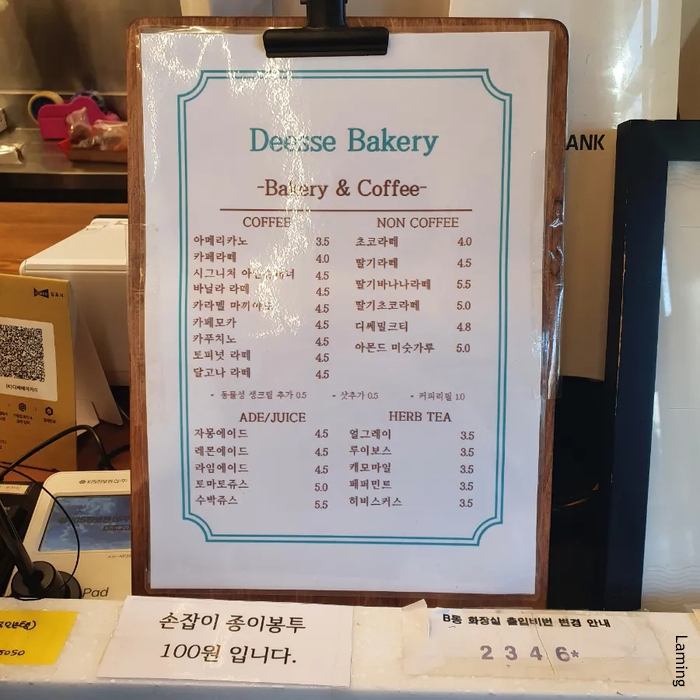 Deesse Bakery
-Bakery & Coffee-
COFFEE
아메리카노 3.5
카페라떼 4.0
시그니처 4.5
바닐라 라떼 4.5
카라멜 마끼아또 4.5
카페모카 4.5
카푸치노 4.5
토피넛 라떼 4.5
달고나 라떼 4.5
NON COFFEE
초코라떼 4.0
딸기라떼 4.5
딸기바나나라떼 5.5
딸기초코라떼 5.0
디쎄밀크티 4.8
아몬드 미숫가루 5.0
• 동물성 생크림 추가 0.5 • 샷추가 0.5 • 커피리필 1.0
ADE/JUICE
자몽에이드 4.5
레몬에이드 4.5
라임에이드 4.5
토마토쥬스 5.0
수박쥬스 5.5
HERB TEA
얼그레이 3.5
루이보스 3.5
캐모마일 3.5
페퍼민트 3.5
히비스커스 3.5
ANK
Pad
손잡이 종이봉투
100원 입니다.
B동 화장실 출입비번 변경 안내
2 3 4 6*
Laming